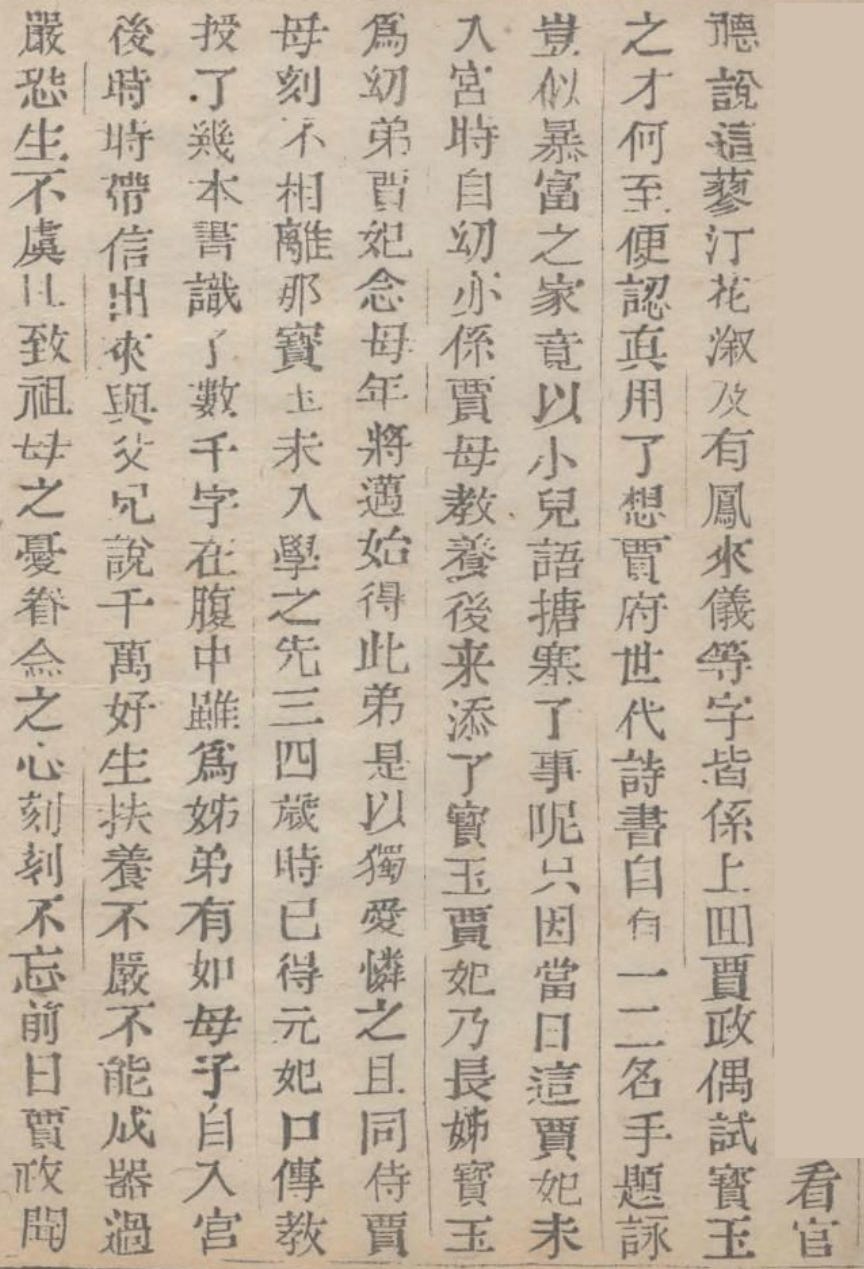 看官
聽說這蓼汀花溆及有鳳來儀等字皆係上囬賈政偶試寳玉
之才何至便認真用了想賈府世代詩書自有一二名手題詠
豈似暴富之家竟以小兒語搪塞了事呢只因當日這賈妃未
入宮時自幼亦係賈母教養後来添了寳玉賈妃乃長姊寳玉
爲幼弟賈妃念母年將邁始得此弟是以獨愛憐之且同侍賈
母刻不相離那寳玉未入學之先三四歲時已得元妃口傳教
授了幾本書識了數千字在腹中雖爲姊弟有如母子自入宮
後時時帶信出來與父兄說千萬好生扶養不嚴不能成器過
嚴恐生不虞且致祖母之憂眷念之心刻刻不忘前日賈政聞